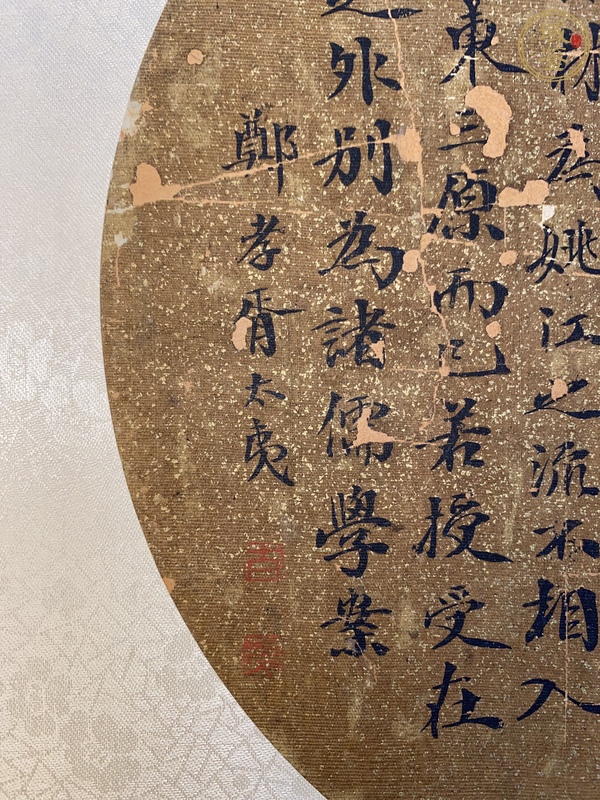 為姚江之流不相入
東三原而已若授受在
之外別為諸儒學案
鄭孝胥太夷